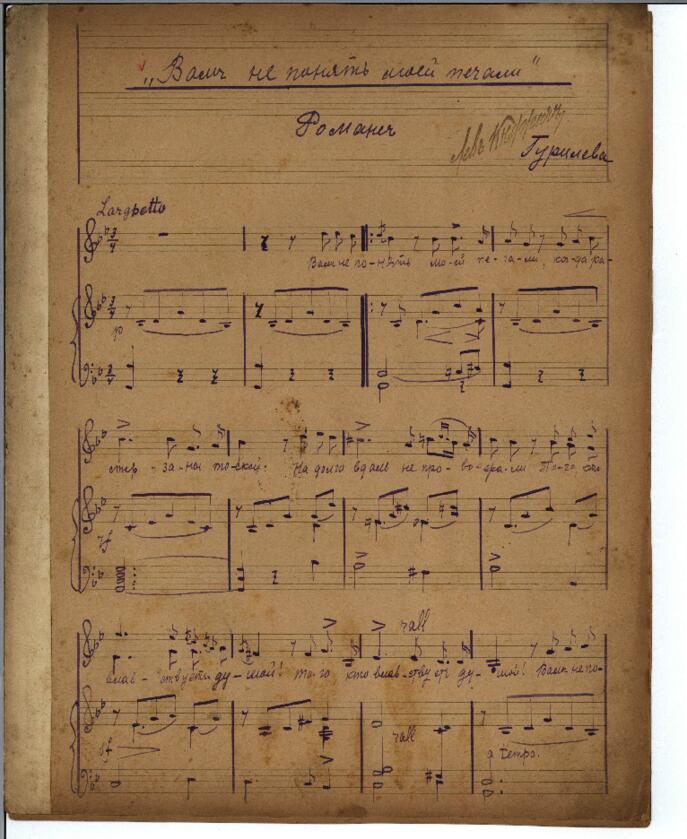 „Вамъ не понять моей печали“
Романсъ
Гурилева
Larghetto
Вамъ не по-нять мо-ей пе-ча-ли, ког-да ра-
p
стер-за-ны то-ской. На долго вдаль не про-во-жали То-го, кто
sf
влас-твуетъ ду-шой! то-го кто влас-твуетъ ду-шой! Вамъ не по-
rall
sf
rall
a tempo.